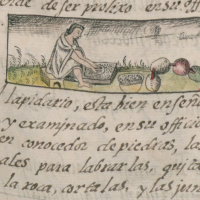 de ser prolixo en su off
lapidario, esta bien enseña
y examinado, en su officio
en conocedor de piedras, la
ales para labrarlas, quita
la roca, cortalas, y las jun